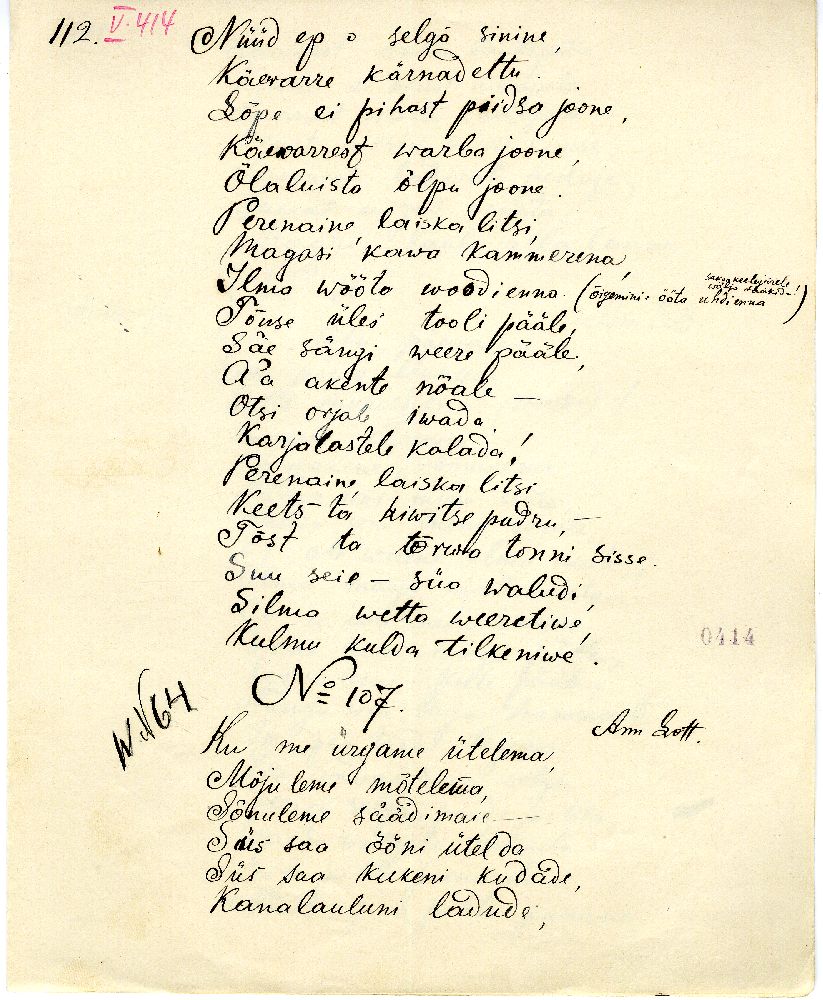 112. V. 414
Nüüd ep o selgö sinine,
Käewarre kärnadettu.
Lõpe ei pihast pöidsa joone,
Käewarrest warba joone,
Õlaluista õlpu joone.
Perenaine, laiska litsi,
Magasi kawa kammerena,
Ilma wööta woodienna. (õigemini: ööta uhdienna)
Tõuse üles tooli pääle,
Säe sängi weere pääle,
Aa akente nõale —
Otsi orjale iwada,
Karjalastele kalada!
Perenaine, laiska litsi
Keets ta kiwitse padru, —
Tõst ta tõrwa tonni sisse.
Suu seie — süa waludi,
Silma wetta weeretiwe,
Kulmu kulda tilkeniwe.
0414
No 107.
Ann Lott.
Ku me ürgame ütelema,
Mõjuleme mõtelema,
Sõnuleme säädimaie —
Siis saa ööni ütelda
Siis saa kukeni kudade,
Kanalauluni ladude,